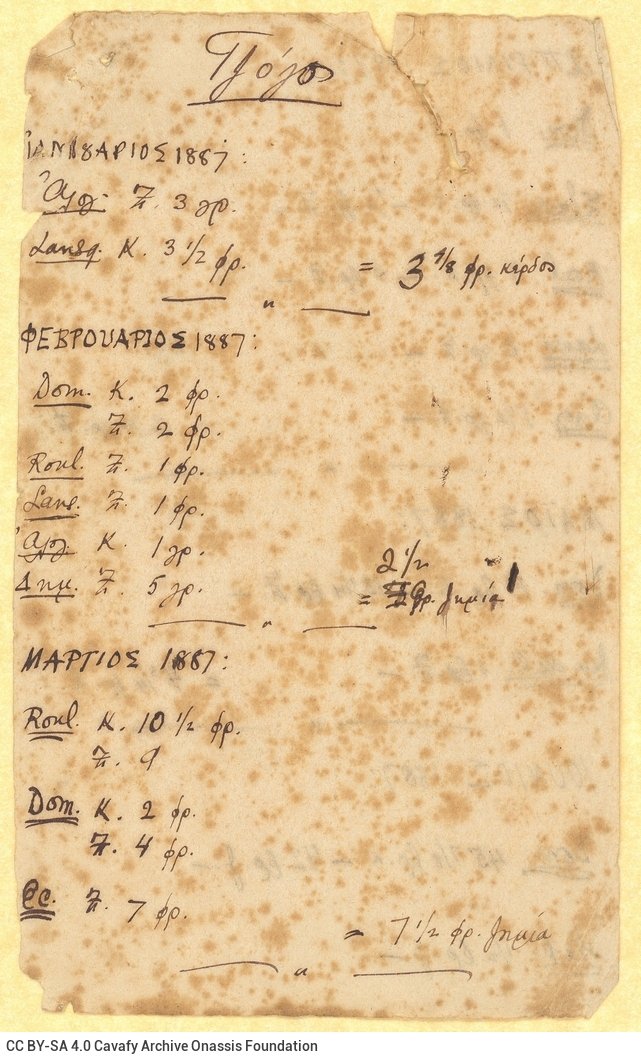 Τζόγος
ΙΑΝΟΥΑΡΙΟΣ 1887:
Ζ. 3 γρ.
Lansq. Κ. 3 1/2 φρ. = 3 4/8 φρ. κέρδος
"
ΦΕΒΡΟΥΑΡΙΟΣ 1887:
Dom. Κ. 2 φρ.
Ζ. 2 φρ.
Roul. Ζ. 1 φρ.
Lans. Ζ. 1 φρ.
Κ. 1 γρ.
Δημ. Ζ. 5 γρ. = 2 1/2 φρ. ζημία
"
ΜΑΡΤΙΟΣ 1887:
Roul. Κ. 10 1/2 φρ.
Ζ. 9
Dom. Κ. 2 φρ.
Ζ. 4 φρ.
Ζ. 7 φρ.
= 7 1/2 φρ. ζημία
"
CC BY-SA 4.0 Cavafy Archive Onassis Foundation